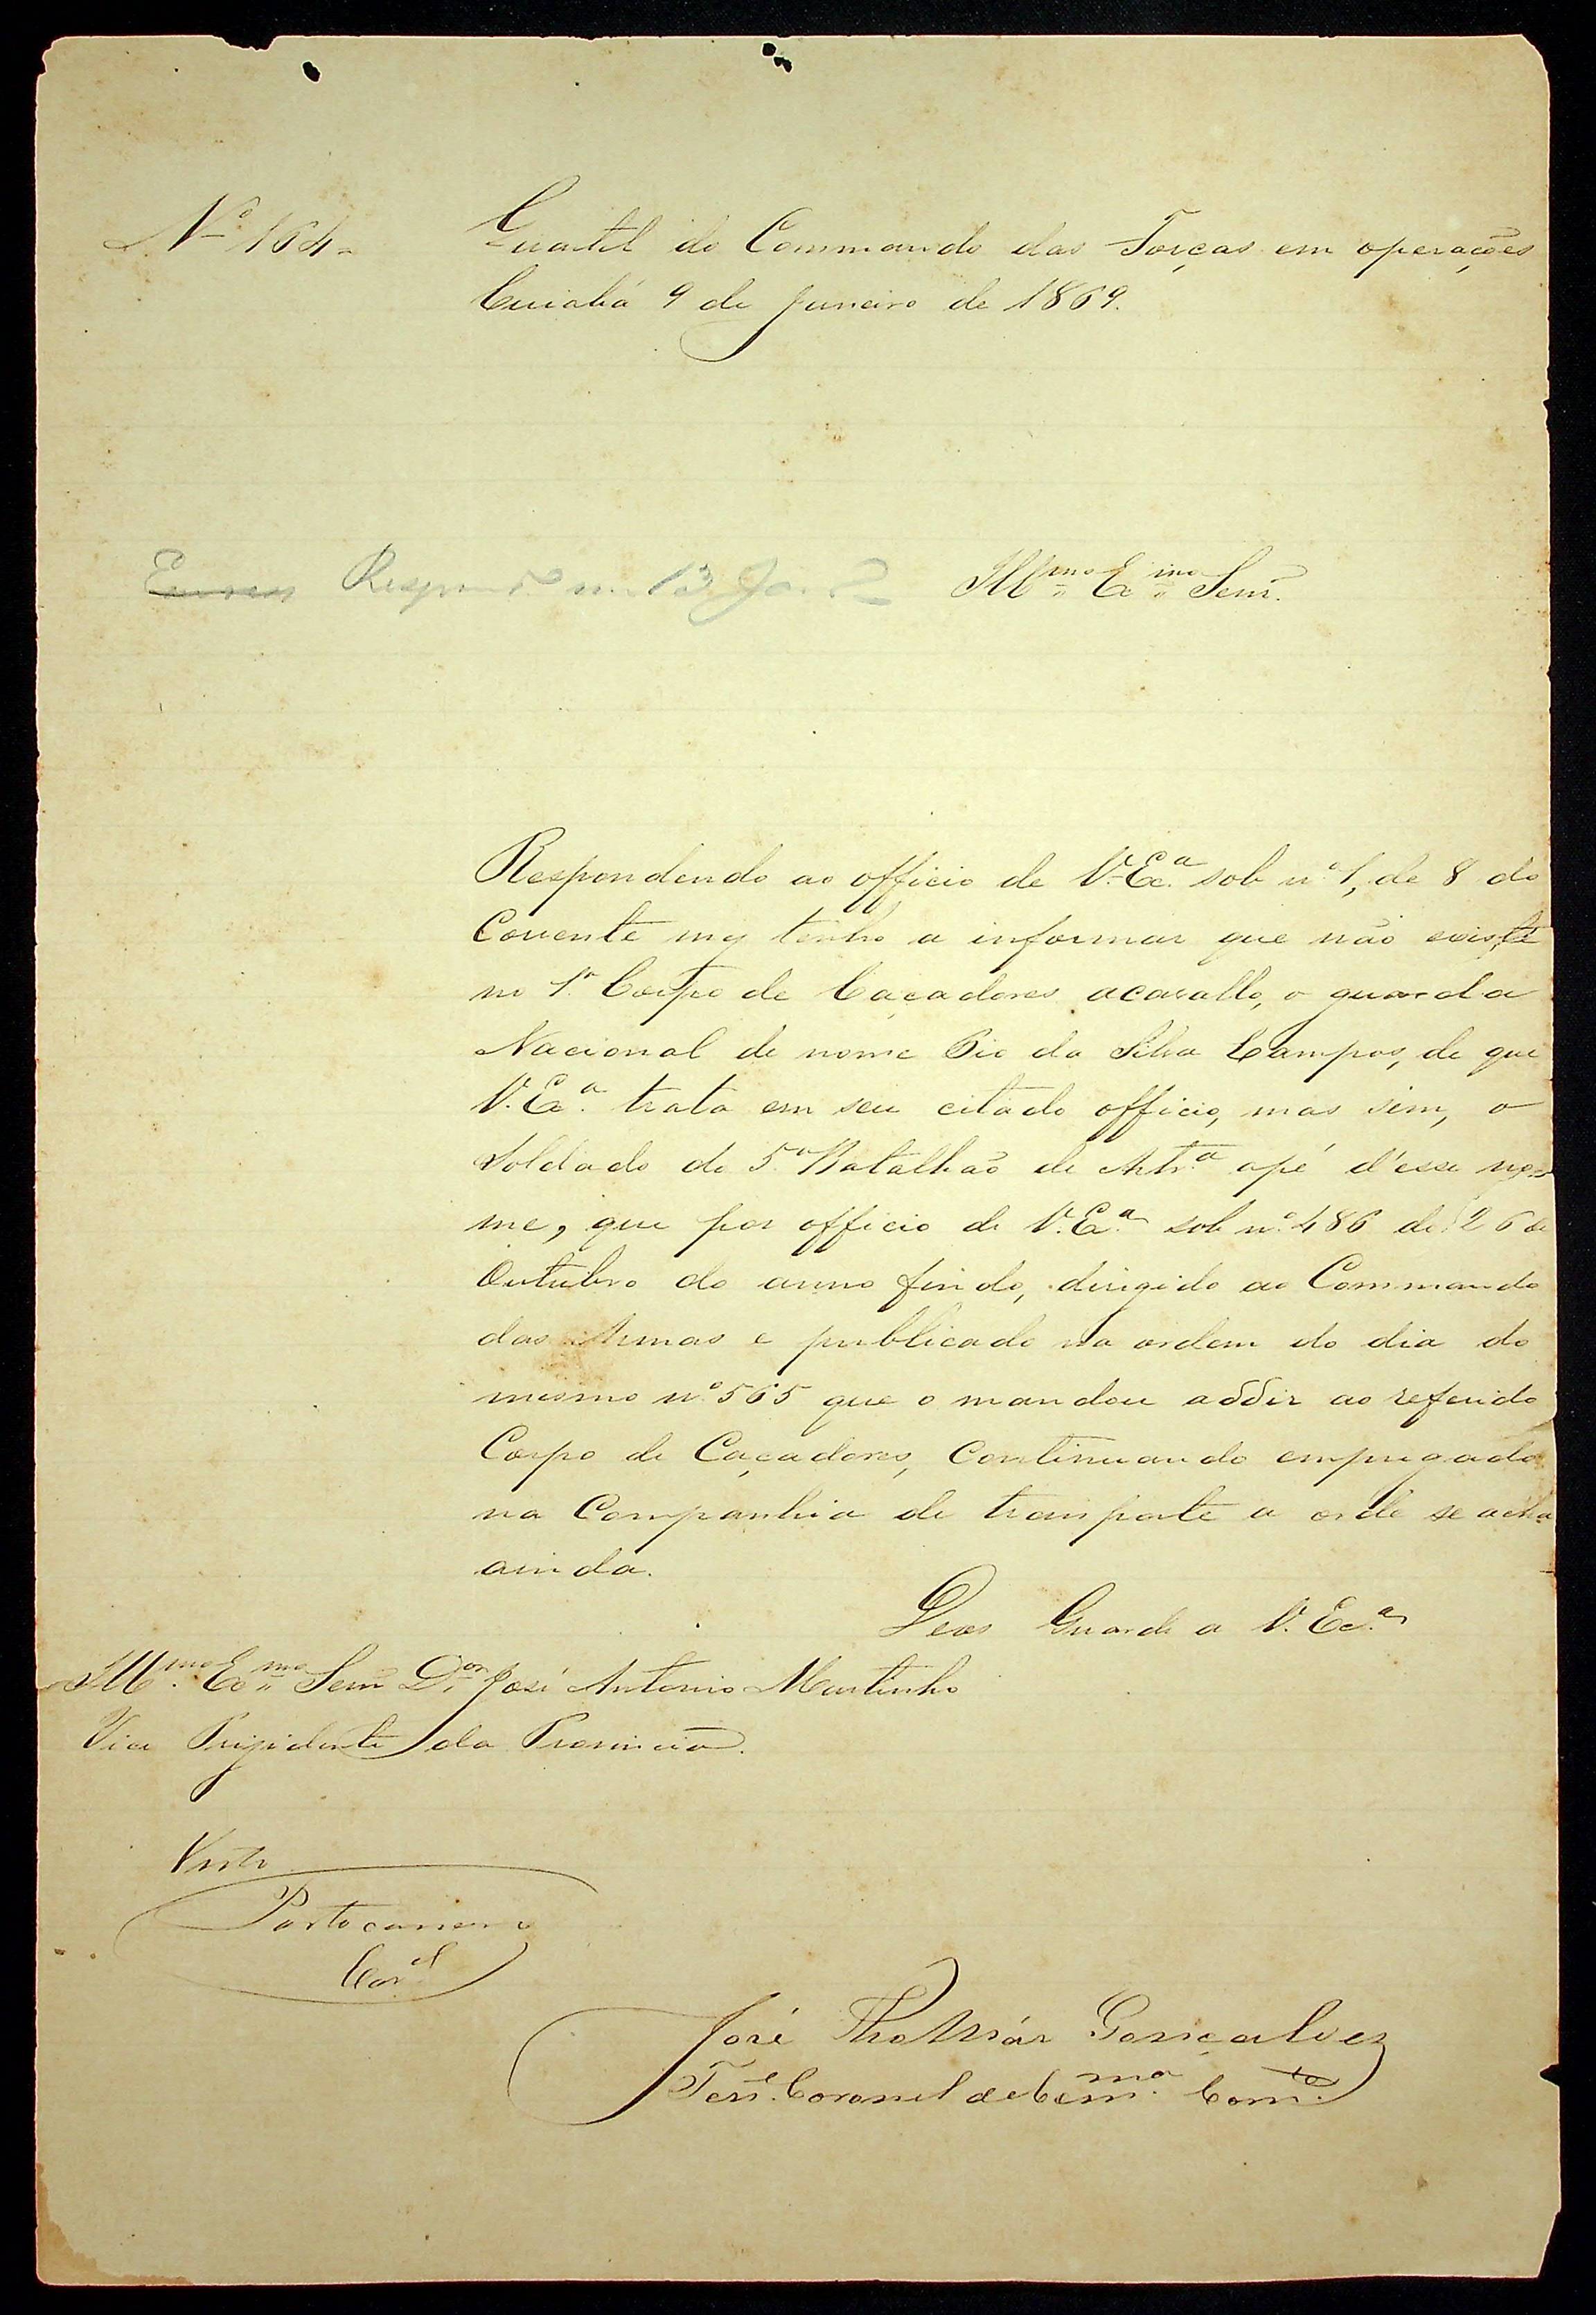 Nº 164-
Quartel do Commando das Forças em operações
Cuiabá 9 de Janeiro de 1869.
Illmo Exmo Senr.
Respondendo ao officio de V. Exa. sob nº 1, de 8 do
Corrente me tenho a informar que não existe
no 1º Corpo de Caçadores acavallo, o guarda
Nacional de nome Pio da Silva Campos, de que
V. Exa. trata em seu citado officio, mas sim, o
Soldado do 5º Batalhão de Artra. apé d'esse no-
me, que por officio de V. Exa. sob nº 486 de 26 de
Outubro do anno findo, dirigido ao Commando
das Armas e publicado na ordem do dia do
mesmo nº 565 que o mandou addir ao referido
Corpo de Caçadores, Continuando empregado
na Companhia de transporte a onde se acha
ainda.
Deos Guarde a V. Exa.
Illmo. Exmo Senr Dor José Antonio Murtinho
Vice Prezidente da Provincia.
Visto
Portocarrero
Corel
José Thomás Gonçalves
Tene. Coronel de Comma. Comte.